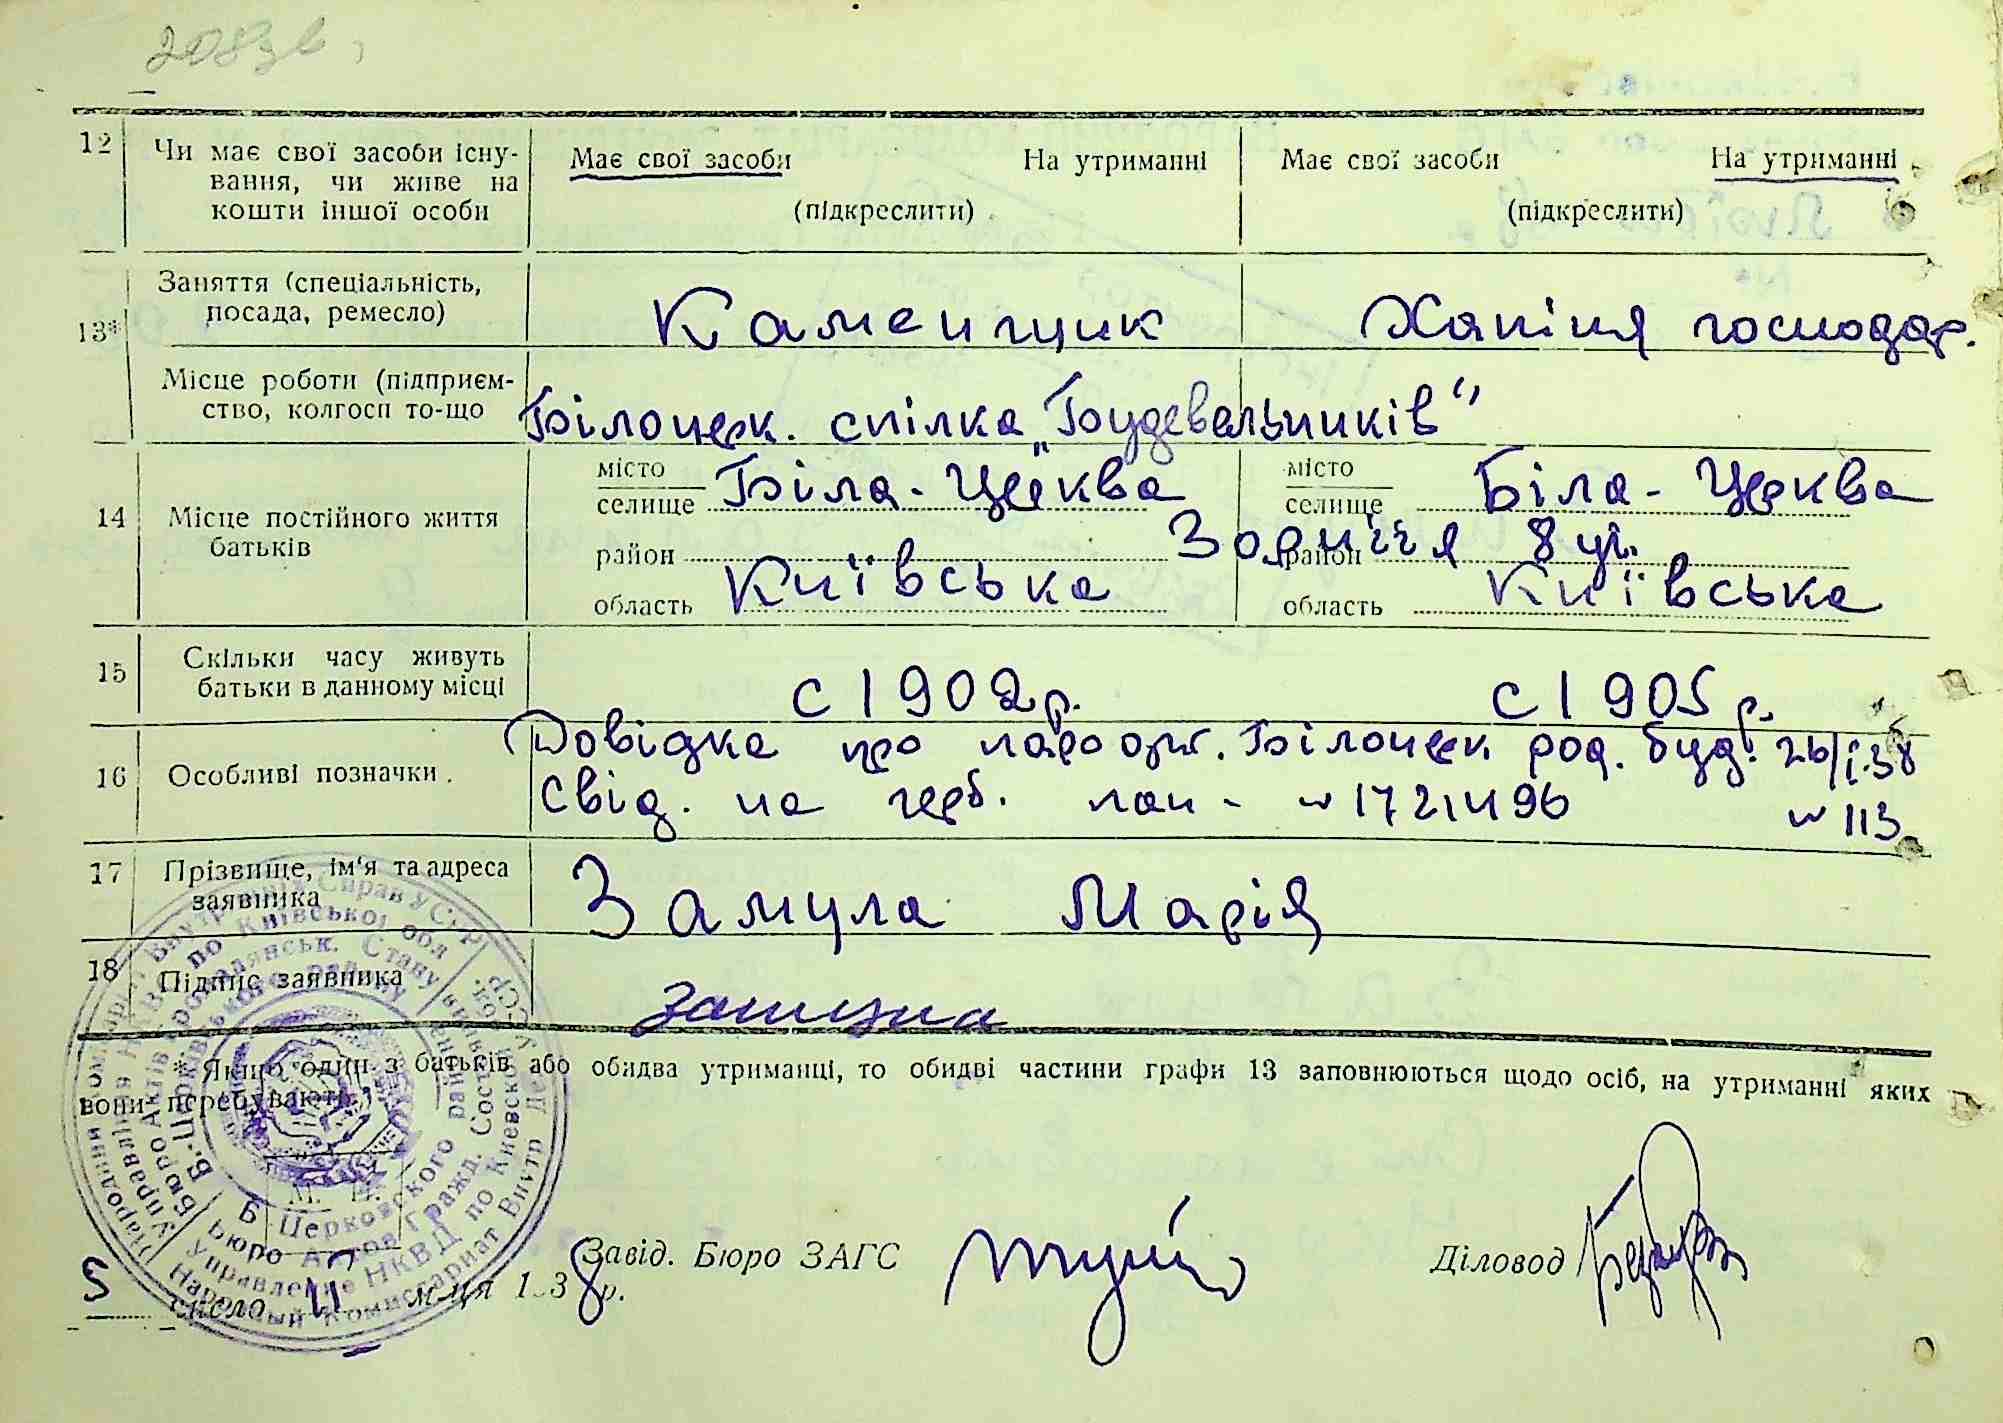 208зв,
12 Чи має свої засоби існу-
вання, чи живе на
кошти іншої особи
Має свої засоби На утриманні
(підкреслити)
Має свої засоби На утриманні
(підкреслити)
13* Заняття (спеціальність,
посада, ремесло)
Каменщик
Хатіня господар.
Місце роботи (підприєм-
ство, колгосп то-що
Білоцерк. спілка „Будевельників"
14 Місце постійного життя
батьків
місто
селище Біла-Церква
район
область Київська
місто
селище Біла-Церква
район
область Київська
8
15 Скільки часу живуть
батьки в данному місці
с 1902 р.
с 1905 р.
16 Особливі позначки.
Довідка про Білоцерк род. буд. 26/I.38
Свід. на герб. № 1721496 № 113
17 Прізвище, ім'я та адреса
заявника
Замула Марія
18 Підпис заявника
Замула
* Якщо один з батьків або обидва утриманці, то обидві частини графи 13 заповнюються щодо осіб, на утриманні яких
вони перебувають.
М. П.
Завід. Бюро ЗАГС
Діловод
5 число II м-ця 1938 р.
Народний Комісаріат Внутрішніх Справ УСРР
Управління НКВС по Київській обл
Бюро Актів Громадянськ. Стану
Б.-Церківського району
Б Церковского района
Бюро Актов Гражд. Состояния
Управление НКВД по Киевской обл.
Народный Комиссариат Внутр Дел УССР